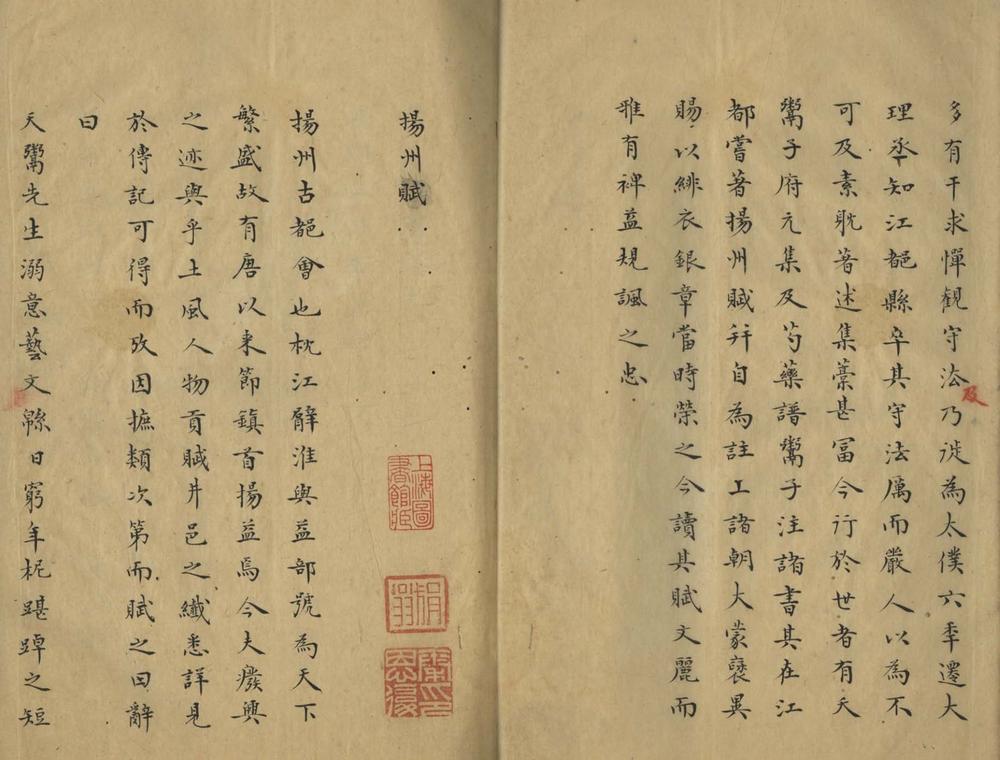 多有干求憚觀守法乃徙為太僕六秊遷大
及
理丞知江都縣卒其守法厲而嚴人以為不
可及素耽著述集藁甚富今行於世者有天
鬻子府元集及芍藥譜鬻子注諸書其在江
都嘗著揚州賦幷自為註上諸朝大蒙褒異
賜以緋衣銀章當時榮之今讀其賦文麗而
雅有裨益規諷之忠
揚州賦
上海圖書館藏
揚州古都會也枕江臂淮與益部號為天下
繁盛故有唐以来節鎮首揚益焉今夫癈興
之迹與乎土風人物貢賦井邑之纖悉詳見
於傳記可得而攷因摭類次第而賦之曰辭
曰
天鬻先生溺意藝文緜日窮年柅踸踔之短